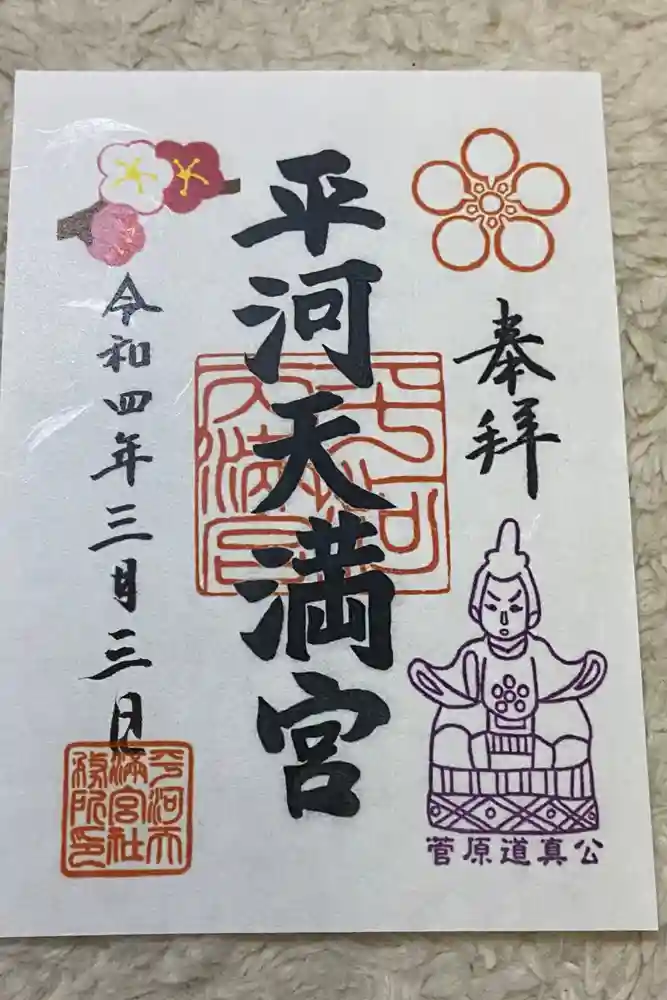 奉拝
平河天満宮
令和四年三月三日
菅原道真公
平河天満宮
平河天満宮社務所印